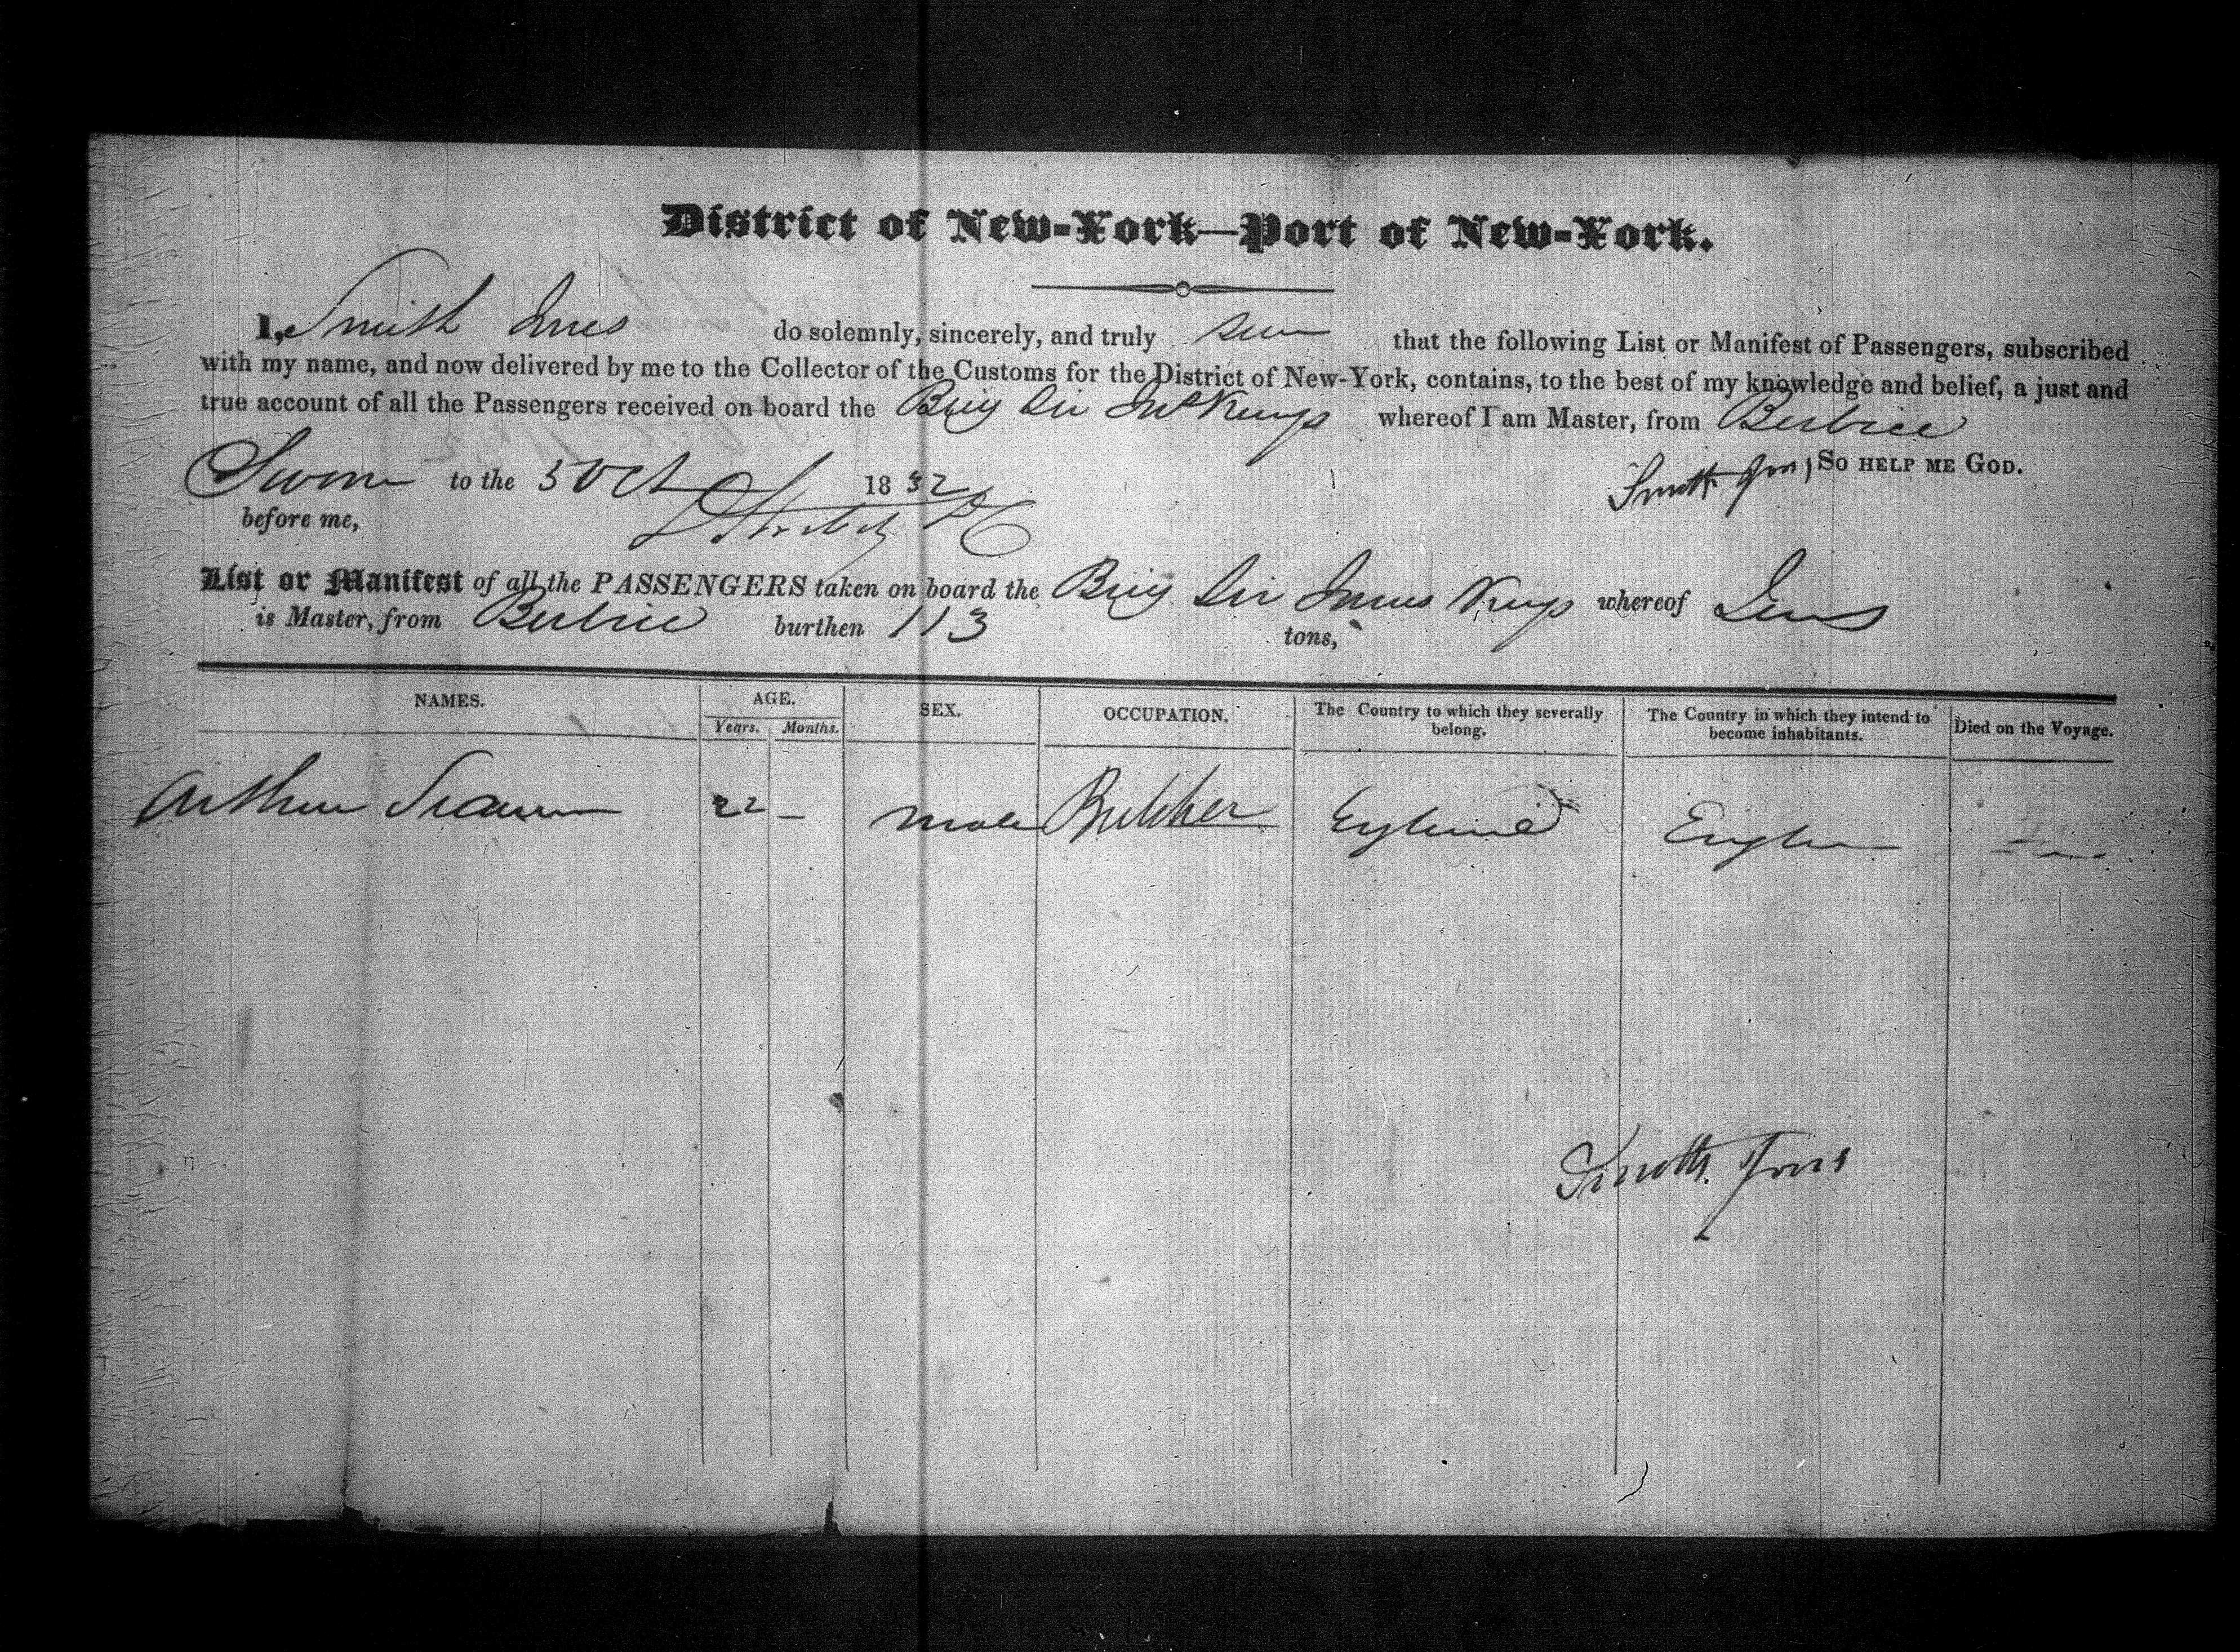 District of New-York—Port of New-York.
I, Smith do solemnly, sincerely, and truly that the following List or Manifest of Passengers, subscribed
with my name, and now delivered by me to the Collector of the Customs for the District of New-York, contains, to the best of my knowledge and belief, a just and
true account of all the Passengers received on board the Brig whereof I am Master, from Berbice
So help me God.
Sworn to the 5 Oct 1832
before me,
List or Manifest of all the PASSENGERS taken on board the Brig whereof
is Master, from Berbice burthen 113 tons,
NAMES. AGE. SEX. OCCUPATION. The Country to which they severally belong. The Country in which they intend to become inhabitants. Died on the Voyage.
Years. Months.
Arthur 22 — Male Butcher England